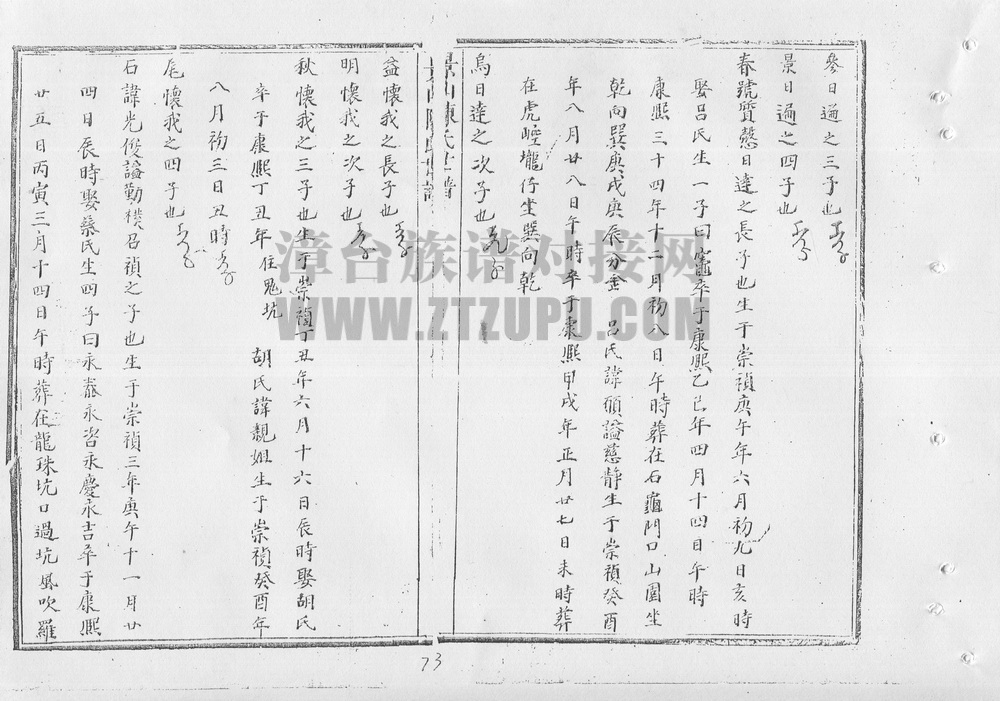 參日過之三子也
景日過之四子也
春號質愨日達之長子也生于崇禎庚午年六月初九日亥時
娶呂氏生一子曰 卒于康熙乙巳年四月十四日午時
康熙三十四年十一月初八日午時葬在石龜門口山園坐
乾向巽庚戌庚辰分金 呂氏諱頎謚慈靜生于崇禎癸酉
年八月廿八日午時卒于康熙甲戌年正月廿七日未時葬
在虎崆壠仔坐巽向乾
烏日達之次子也
益懷我之長子也
明懷我之次子也
秋懷我之三子也生于崇禎丁丑年六月十六日辰時娶胡氏
卒于康熙丁丑年 住鬼坑 胡氏諱靚姐生于崇禎癸酉年
八月初三日丑時
尾懷我之四子也
石諱光俊謚勤樸召禎之子也生于崇禎三年庚午十一月廿
四日辰時娶蔡氏生四子曰永泰永咨永慶永吉卒于康熙
廿五日丙寅三月十四日午時葬在龍珠坑口過坑風吹羅
漳台族谱对接网
WWW.ZTZUPU.COM
73